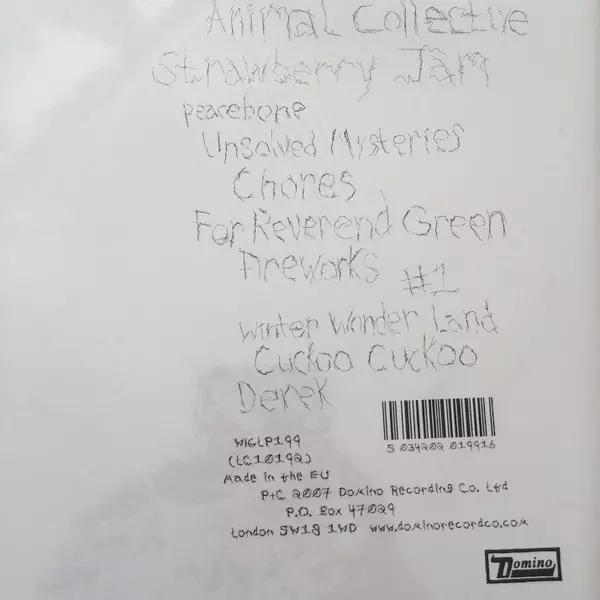 Animal Collective
Strawberry Jam
peacebone
Unsolved Mysteries
Chores
For Reverend Green
Fireworks #1
Winter Wonder Land
Cuckoo Cuckoo
Derek
WIGLP199
(LC10192)
Made in the EU
P+C 2007 Domino Recording Co. Ltd
P.O. Box 47029
London SW18 1WD www.dominorecordco.com
5 034202 019916
Domino